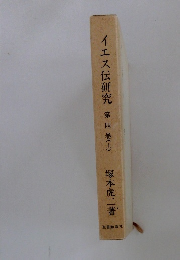 イエス伝研究
第四巻
塚本虎二著